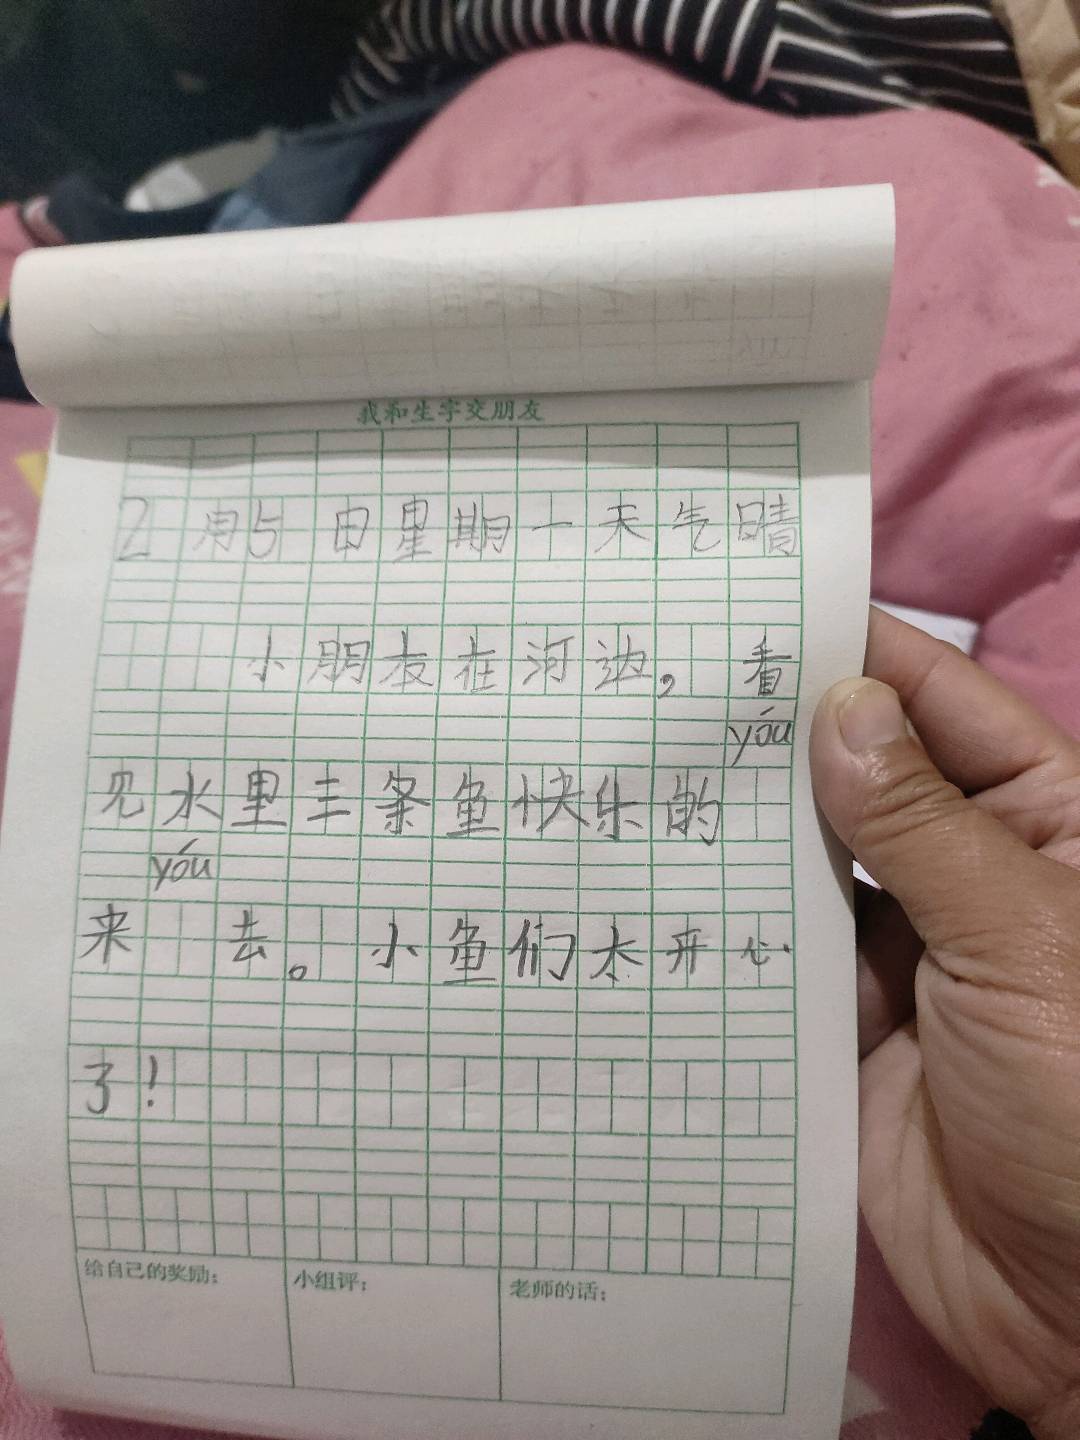 我和生字交朋友
2月5日星期一天气晴
小朋友在河边，看
yóu
见水里三条鱼快乐的
yóu
来 去。小鱼们太开心
了！
给自己的奖励：
小组评：
老师的话：